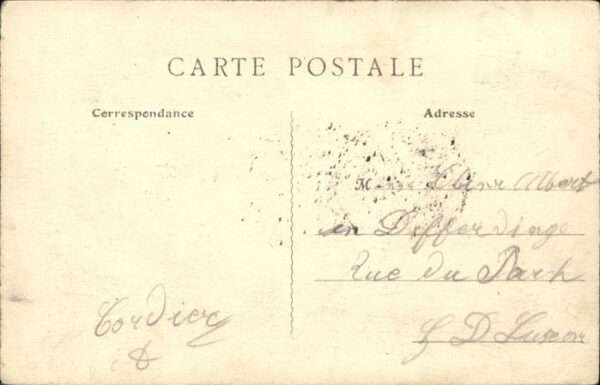 CARTE POSTALE
Correspondance
Adresse
M
Albert
en Differdinge
Rue du Park
G D Luxem
Cordier
&